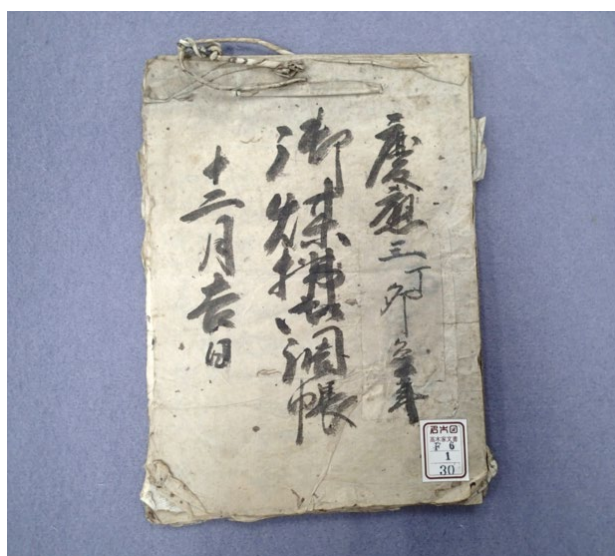 慶應三丁卯年
御煤掃御調帳
十二月吉日
名大図
高木家文書
F 6
1
30